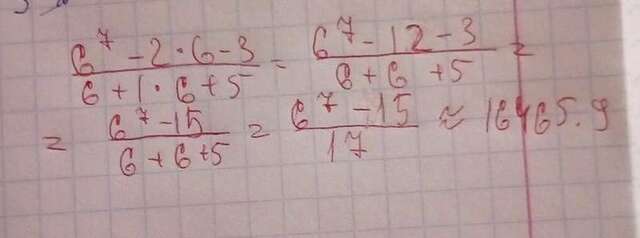 (6^7 - 2·6 - 3)/(6 + 1·6 + 5) = (6^7 - 12 - 3)/(6 + 6 + 5) =
= (6^7 - 15)/(6 + 6 + 5) = (6^7 - 15)/17 ≈ 16465.9